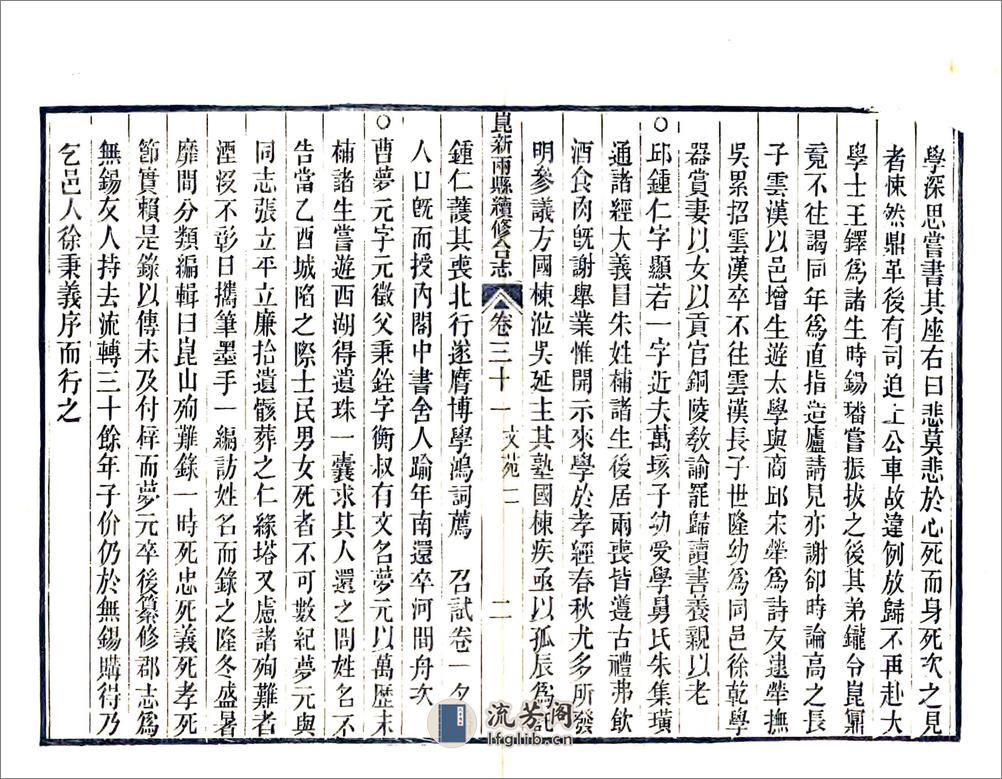 學深思嘗書其座右曰悲莫悲於心死而身死次之見
者悚然鼎革後有司迫上公車故違例放歸不再赴大
學士王鐸爲諸生時錫璠嘗振拔之後其弟鑨令崑鼐
竟不往謁同年爲直指造廬請見亦謝卻時論高之長
子雲漢以邑增生遊太學與商邱宋犖爲詩友逮犖撫
吳累招雲漢卒不往雲漢長子世隆幼爲同邑徐乾學
器賞妻以女以貢官銅陵敎諭罷歸讀書養親以老
○邱鍾仁字顯若一字近夫萬垓子幼愛學舅氏朱集璜
通諸經大義冒朱姓補諸生後居兩喪皆遵古禮弗飲
酒食肉旣謝舉業惟開示來學於孝經春秋尤多所發
明參議方國棟涖吳延主其塾國棟疾亟以孤辰爲託
崑新兩縣續修合志 卷三十一 文苑二 二
鍾仁護其喪北行遂膺博學鴻詞薦 召試卷一夕
人口旣而授內閣中書舍人踰年南還卒河間舟次
○曹夢元字元徵父秉銓字衡叔有文名夢元以萬歷末
補諸生嘗遊西湖得遺珠一囊求其人還之問姓名不
告當乙酉城陷之際士民男女死者不可數紀夢元與
同志張立平立廉拾遺骸葬之仁緣塔又慮諸殉難者
湮沒不彰日攜筆墨手一編訪姓名而錄之隆冬盛暑
靡間分類編輯曰崑山殉難錄一時死忠死義死孝死
節實賴是錄以傳未及付梓而夢元卒後纂修郡志爲
無錫友人持去流轉三十餘年子份仍於無錫購得乃
乞邑人徐秉義序而行之
流芳閣
lfglib.cn